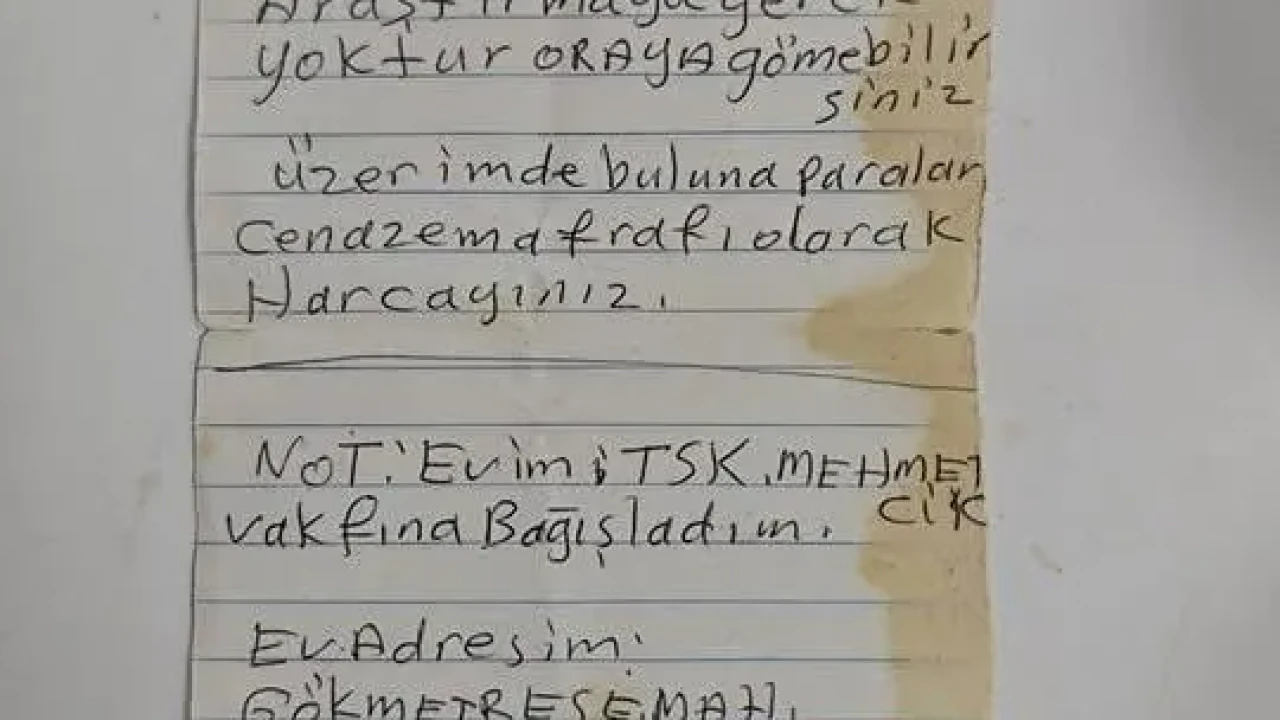 Araştırmaya gerek
yoktur ORAYA gömebilir
siniz
üzerimde buluna paralar
cenazema frafı olarak
Harcayınız.
NOT: Evimi TSK. MEHMET
CİK
vakfına Bağışladım.
Ev Adresim:
GÖKMETRESE MAH.